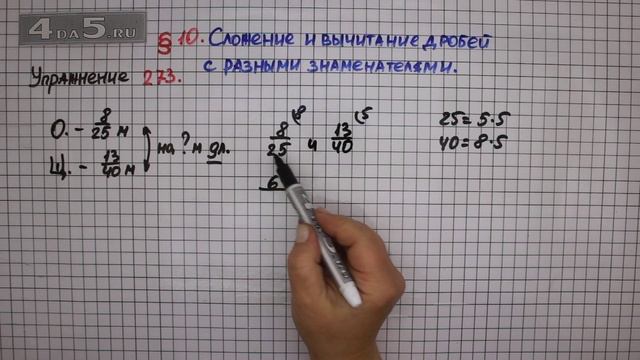 4DA5.RU
§ 10. Сложение и вычитание дробей
с разными знаменателями.
Упражнение 273.
О. - 8/25 м
Щ. - 13/40 м
на ? м дл.
8/25 (8 и 13/40 (5
6
25 = 5·5
40 = 8·5